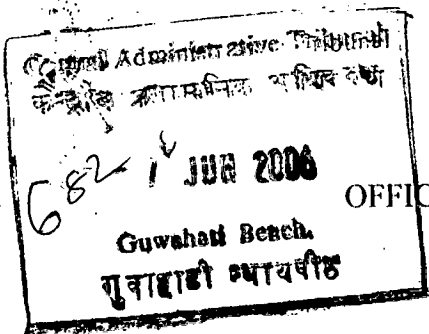 Central Administrative Tribunal
केन्द्रीय प्रशासनिक
682 1 JUN 2006
OFFIC
Guwahati Bench.
गुवाहाटी न्यायपीठ